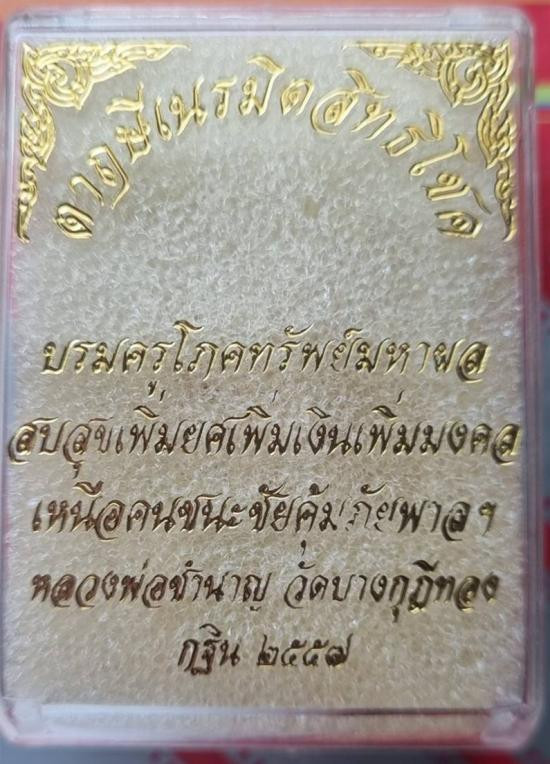 ตาฤๅษีเนรมิตสิทธิโชค
บรมครูโภคทรัพย์มหาผล
สบสุขเพิ่มยศเพิ่มเงินเพิ่มมงคล
เหนือคนชนะชัยคุ้มภัยพาลฯ
หลวงพ่อชำนาญ วัดบางกุฎีทอง
กฐิน ๒๕๕๗